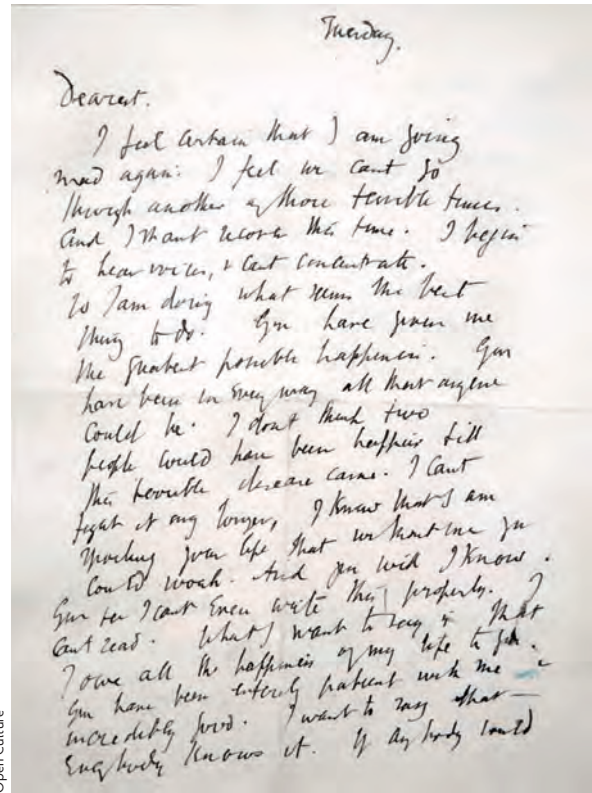 Tuesday.
Dearest.
I feel certain that I am going
mad again: I feel we cant go
through another of those terrible times.
And I shant recover this time. I begin
to hear voices, & cant concentrate.
So I am doing what seems the best
thing to do. You have given me
the greatest possible happiness. You
have been in every way all that anyone
could be. I dont think two
people could have been happier till
this terrible disease came. I cant
fight it any longer, I know that I am
spoiling your life that without me you
could work. And you will I know.
You see I cant even write this properly. I
cant read. What I want to say is that
I owe all the happiness of my life to you.
You have been entirely patient with me &
incredibly good. I want to say that —
everybody knows it. If anybody could
Open Culture